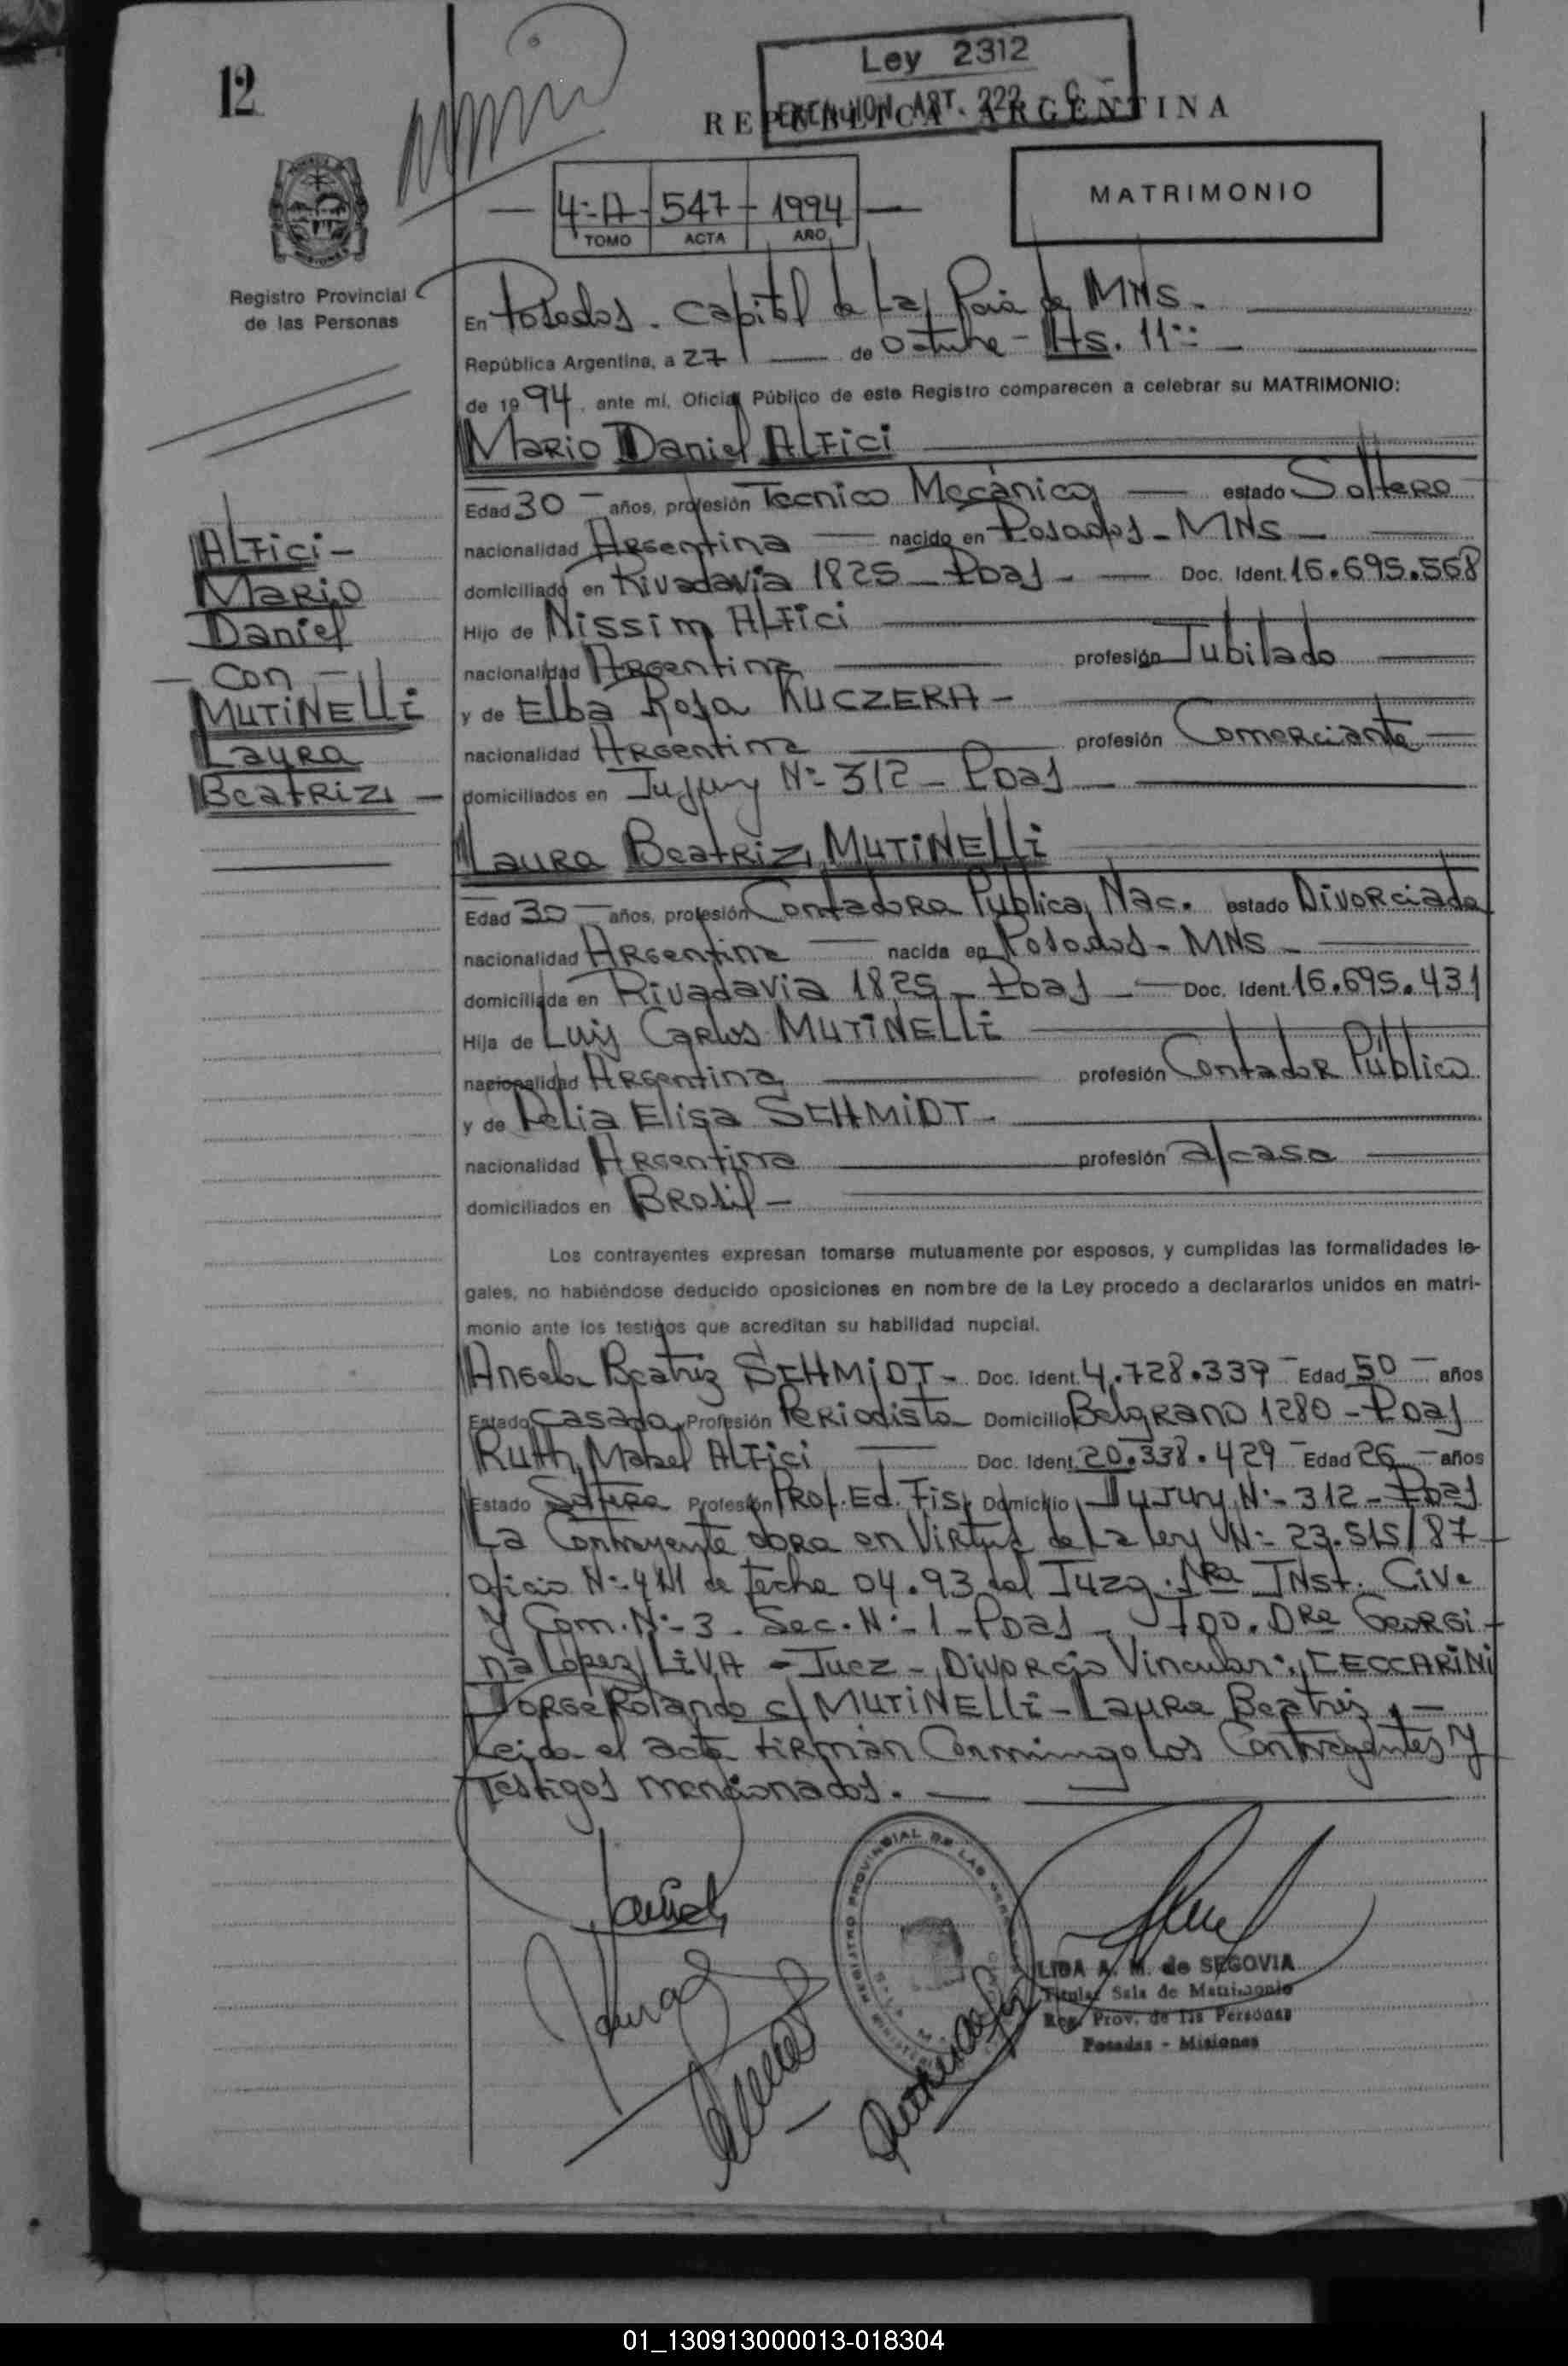 12
Ley 2312
EXENCION ART. 222 - C -
REPUBLICA ARGENTINA
MATRIMONIO
4:-A- 547 - 1994
TOMO ACTA AÑO
Registro Provincial
de las Personas
En Posadas. Capital de La Pcia de MNS.
República Argentina, a 27 de Octubre - Hs. 11::
de 1994, ante mí, Oficial Público de este Registro comparecen a celebrar su MATRIMONIO:
Mario Daniel ALFici
Edad 30 años, profesión Tecnico Mecánico estado Soltero
nacionalidad Argentina nacido en Posadas - MNS -
domiciliado en Rivadavia 1825 - Pdas - Doc. Ident. 16.695.568
Hijo de Nissim ALFici
nacionalidad Argentina profesión Jubilado
y de Elba Rosa KUCZERA -
nacionalidad Argentina profesión Comerciante
domiciliados en Jujuy N:- 312 - Pdas
ALFici -
Mario
Daniel
- Con -
MUTINELLi
Laura
Beatriz -
Laura Beatriz MUTiNELLi
Edad 30 años, profesión Contadora Publica Nac. estado Divorciada
nacionalidad Argentina nacida en Posadas - MNS -
domiciliada en Rivadavia 1825 - Pdas - Doc. Ident. 16.695.431
Hija de Luis Carlos MUTiNELLi
nacionalidad Argentina profesión Contador Público
y de Delia Elisa SCHMiDT -
nacionalidad Argentina profesión a/casa
domiciliados en Brasil -
Los contrayentes expresan tomarse mutuamente por esposos, y cumplidas las formalidades le-
gales, no habiéndose deducido oposiciones en nombre de la Ley procedo a declararlos unidos en matri-
monio ante los testigos que acreditan su habilidad nupcial.
Angela Beatriz SCHMiDT - Doc. Ident. 4.728.339 Edad 50 años
Estado Casada Profesión Periodista Domicilio Belgrano 1280 - Pdas
Ruth Mabel ALFici Doc. Ident. 20.338.429 Edad 26 años
Estado Soltera Profesión Prof. Ed. Fis. Domicilio Jujuy N:- 312 - Pdas
La Contrayente obra en Virtud de La ley N:- 23.515/87
Oficio N:- de fecha 04.93 del Juzg. 1ra INst. Civ.
y Com. N:- 3 - Sec. N:- 1 - Pdas - FDO. Dra Georgi-
na Lopez LiVA - Juez - Divorcio Vincular: CECCARiNi
Jorge Rolando c/ MUTiNELLi - Laura Beatriz. -
Leida el acta firman Conmingo Los Contrayentes y
Testigos mencionados. -
REGISTRO PROVINCIAL DE LAS
LIDA A. M. de SEGOVIA
Titular Sala de Matrimonio
Reg. Prov. de las Personas
Posadas - Misiones
01_130913000013-018304